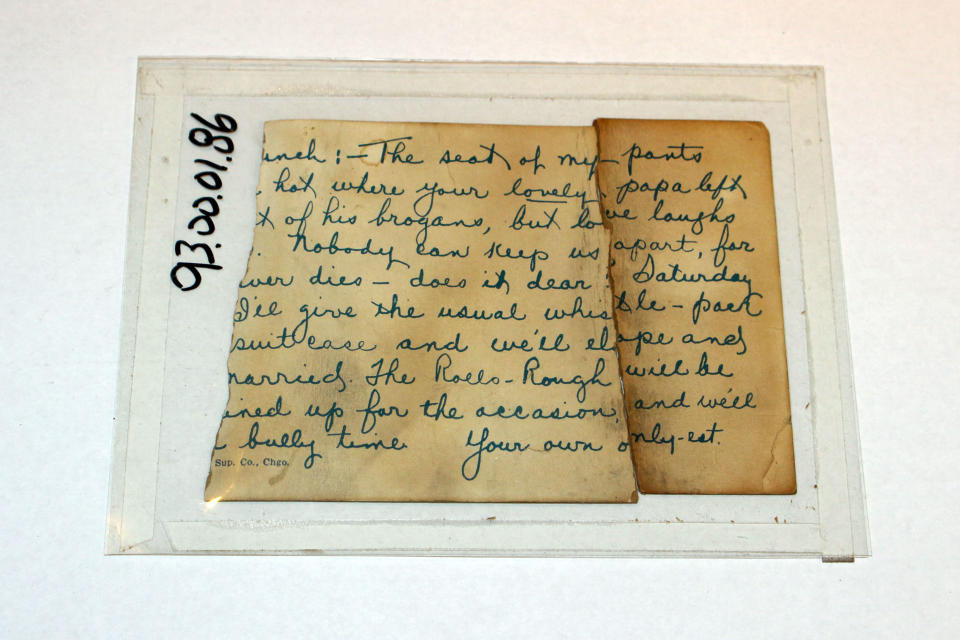 93.00.01.86
unch :- The seat of my pants
hot where your lovely papa left
t of his brogans, but love laughs
. Nobody can keep us apart, for
ver dies - does it dear? Saturday
I'll give the usual whistle - pack
suitcase and we'll elope and
married. The Rolls-Rough will be
ined up for the occasion, and we'll
bully time. Your own only-est.
Sup. Co., Chgo.